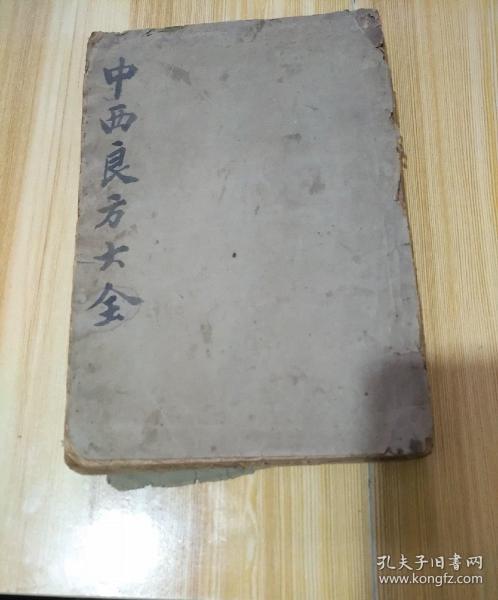 中西良方大全
孔夫子旧书网
www.kongfz.com